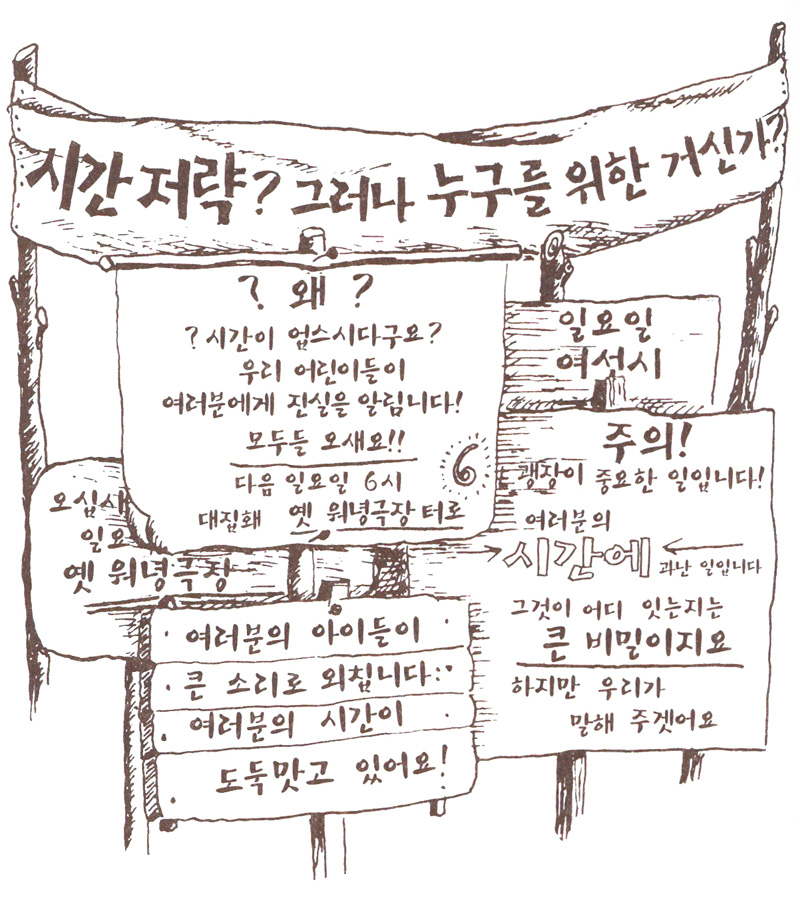 시간 저략? 그러나 누구를 위한 거신가?
? 왜 ?
? 시간이 업스시다구요?
우리 어린이들이
여러분에게 진실을 알림니다!
모두들 오새요!!
다음 일요일 6시
6
대집홰 옛 워녕극장 터로
일요일
여선시
오십시
일요
옛 워녕극장
주의!
쾡장이 중요한 일입니다!
여러분의
시간에
과난 일입니다
그것이 어디 잇는지는
큰 비밀이지요
하지만 우리가
말해 주겟어요
여러분의 아이들이
큰 소리로 외칩니다:
여러분의 시간이
도둑맛고 있어요!